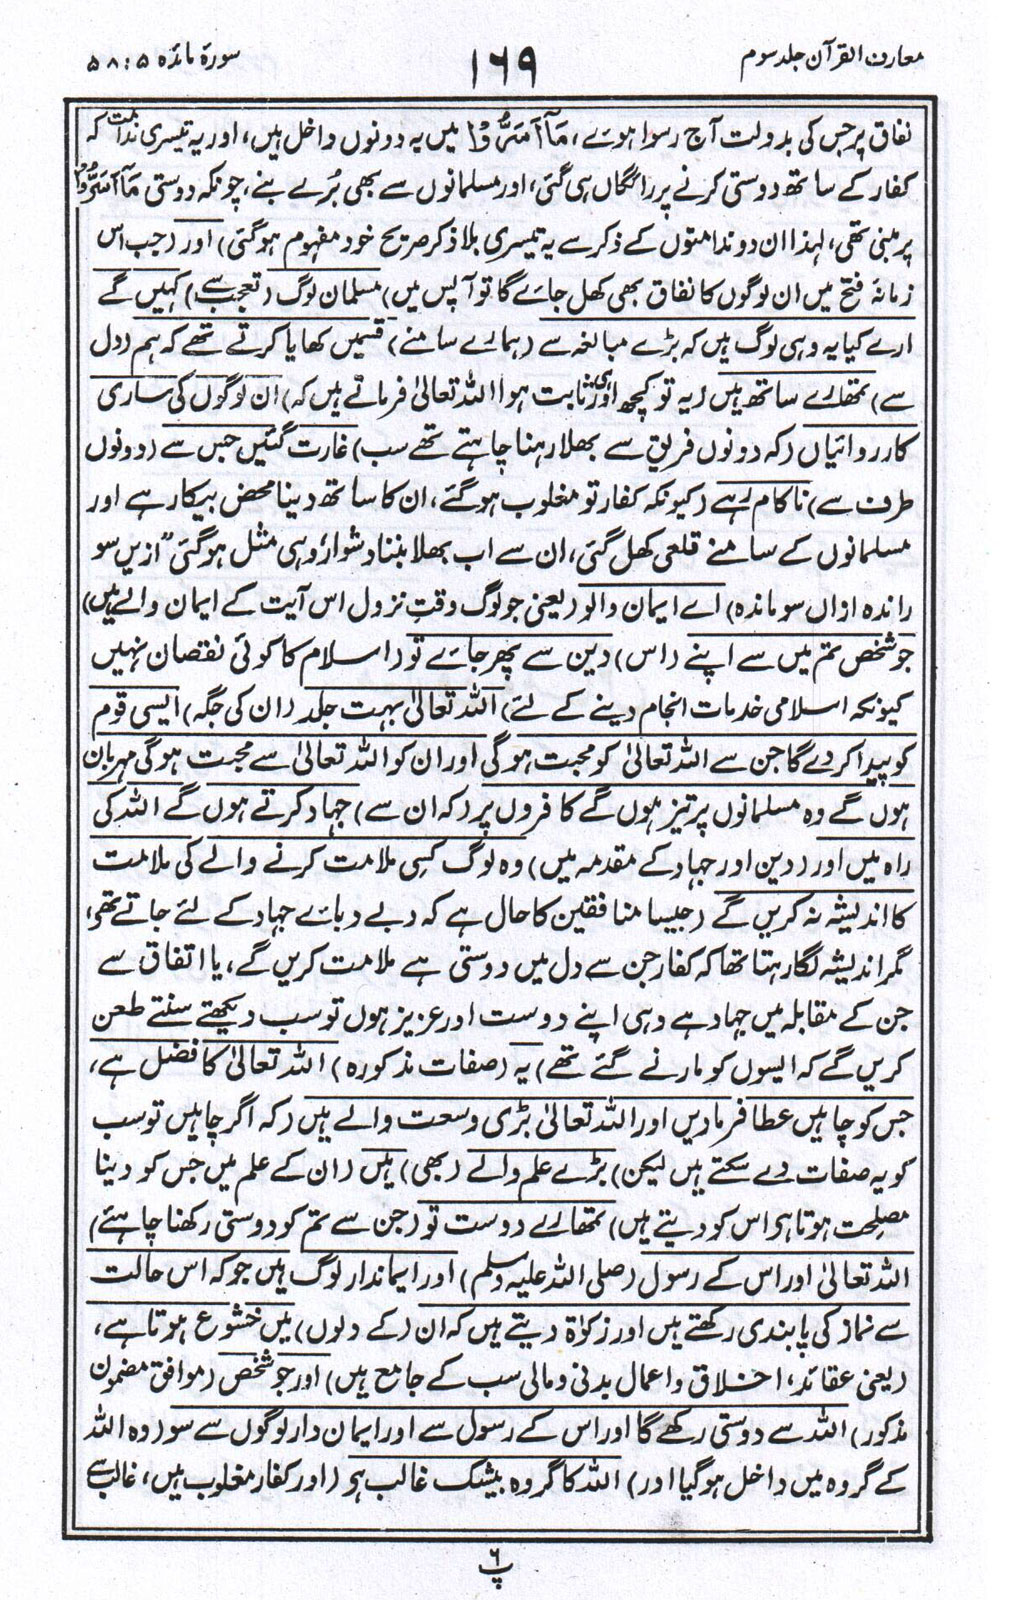 معارف القرآن جلد سوم
۱۶۹
سورۂ مائدہ ۵ : ۵۸
نفاق پر جس کی بدولت آج رسوا ہوئے، مَآ اَسَرُّوْا میں یہ دونوں داخل ہیں، اور یہ تیسری ندامت کہ
کفار کے ساتھ دوستی کرنے پر رائگاں ہی گئی، اور مسلمانوں سے بھی بُرے بنے، چونکہ دوستی مَآ اَسَرُّوْا
پر مبنی تھی، لہٰذا ان دو ندامتوں کے ذکر سے یہ تیسری بلا ذکر صریح خود مفہوم ہوگئی) اور (جب اس
زمانۂ فتح میں ان لوگوں کا نفاق بھی کھل جائے گا تو آپس میں) مسلمان لوگ (تعجب سے) کہیں گے
ارے کیا یہ وہی لوگ ہیں کہ بڑے مبالغہ سے (ہمارے سامنے) قسمیں کھایا کرتے تھے کہ ہم (دل
سے) تمھارے ساتھ ہیں (یہ تو کچھ اور ہی ثابت ہوا اللہ تعالیٰ فرماتے ہیں کہ) ان لوگوں کی ساری
کارروائیاں (کہ دونوں فریق سے بھلا رہنا چاہتے تھے سب) غارت گئیں جس سے (دونوں
طرف سے) ناکام رہے (کیونکہ کفار تو مغلوب ہوگئے، ان کا ساتھ دینا محض بیکار ہے اور
مسلمانوں کے سامنے قلعی کھل گئی، ان سے اب بھلا بننا دشوار، وہی مثل ہوگئی "ازیں سو
راندہ ازاں سو ماندہ) اے ایمان والو (یعنی جو لوگ وقتِ نزول اس آیت کے ایمان والے ہیں)
جو شخص تم میں سے اپنے (اس) دین سے پھر جائے تو (اسلام کا کوئی نقصان نہیں
کیونکہ اسلامی خدمات انجام دینے کے لئے) اللہ تعالیٰ بہت جلد (ان کی جگہ) ایسی قوم
کو پیدا کر دے گا جن سے اللہ تعالیٰ کو محبت ہوگی اور ان کو اللہ تعالیٰ سے محبت ہوگی مہربان
ہوں گے وہ مسلمانوں پر تیز ہوں گے کافروں پر (کہ ان سے) جہاد کرتے ہوں گے اللہ کی
راہ میں اور (دین اور جہاد کے مقدمہ میں) وہ لوگ کسی ملامت کرنے والے کی ملامت
کا اندیشہ نہ کریں گے (جیسا منافقین کا حال ہے کہ دبے دبائے جہاد کے لئے جاتے تھے،
مگر اندیشہ لگا رہتا تھا کہ کفار جن سے دل میں دوستی ہے ملامت کریں گے، یا اتفاق سے
جن کے مقابلہ میں جہاد ہے وہی اپنے دوست اور عزیز ہوں تو سب دیکھتے سنتے طعن
کریں گے کہ ایسوں کو مارنے گئے تھے) یہ (صفات مذکورہ) اللہ تعالیٰ کا فضل ہے،
جس کو چاہیں عطا فرمادیں اور اللہ تعالیٰ بڑی وسعت والے ہیں (کہ اگر چاہیں تو سب
کو یہ صفات دے سکتے ہیں لیکن) بڑے علم والے (بھی) ہیں (ان کے علم میں جس کو دینا
مصلحت ہوتا ہی اس کو دیتے ہیں) تمھارے دوست تو (جن سے تم کو دوستی رکھنا چاہئے)
اللہ تعالیٰ اور اس کے رسول (صلی اللہ علیہ وسلم) اور ایماندار لوگ ہیں جو کہ اس حالت
سے نماز کی پابندی رکھتے ہیں اور زکوٰۃ دیتے ہیں کہ ان (کے دلوں) میں خشوع ہوتا ہے،
(یعنی عقائد، اخلاق و اعمال بدنی و مالی سب کے جامع ہیں) اور جو شخص (موافق مضمون
مذکور) اللہ سے دوستی رکھے گا اور اس کے رسول سے اور ایمان دار لوگوں سے سو (وہ اللہ
کے گروہ میں داخل ہوگیا اور) اللہ کا گروہ بیشک غالب ہی (اور کفار مغلوب ہیں، غالب سے
پ ۶